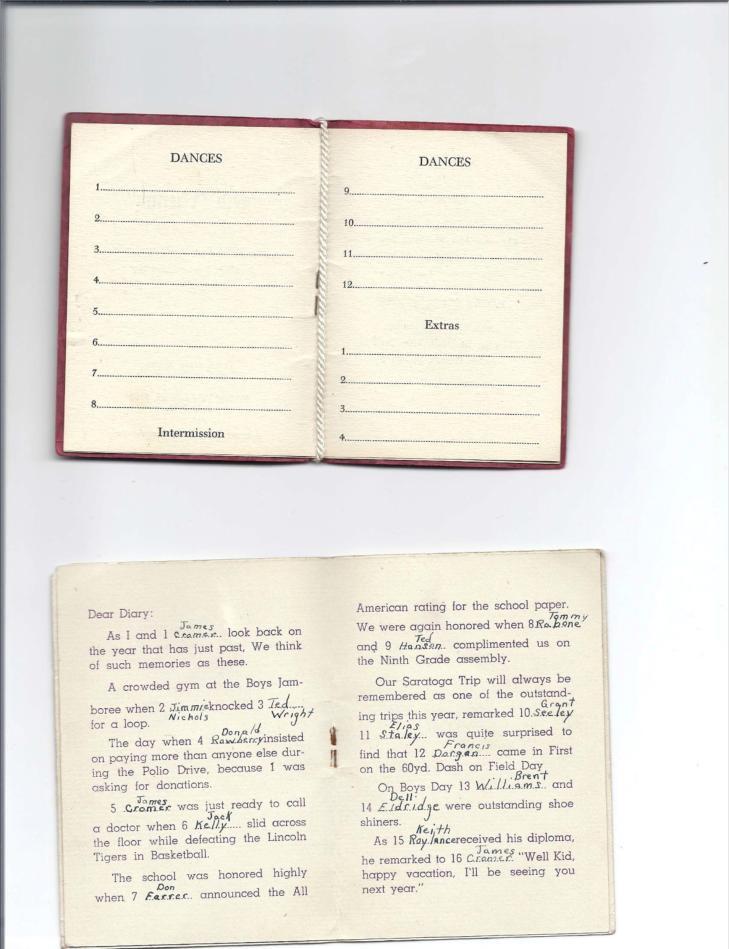 DANCES
1
2
3
4
5
6
7
8
Intermission
DANCES
9
10
11
12
Extras
1
2
3
4
Dear Diary:
As I and 1 James Cromer look back on
the year that has just past, We think
of such memories as these.
A crowded gym at the Boys Jam-
boree when 2 Jimmie Nichols knocked 3 Ted Wright
for a loop.
The day when 4 Donald Rawberry insisted
on paying more than anyone else dur-
ing the Polio Drive, because I was
asking for donations.
5 James Cromer was just ready to call
a doctor when 6 Jack Kelly slid across
the floor while defeating the Lincoln
Tigers in Basketball.
The school was honored highly
when 7 Don Farrer announced the All
American rating for the school paper.
We were again honored when 8 Tommy Rabone
and 9 Ted Hansen complimented us on
the Ninth Grade assembly.
Our Saratoga Trip will always be
remembered as one of the outstand-
ing trips this year, remarked 10 Grant Seeley
11 Elias Staley was quite surprised to
find that 12 Francis Dargan came in First
on the 60yd. Dash on Field Day
On Boys Day 13 Brent Williams and
14 Dell Eldridge were outstanding shoe
shiners.
As 15 Keith Roylance received his diploma,
he remarked to 16 James Cromer "Well Kid,
happy vacation, I'll be seeing you
next year."